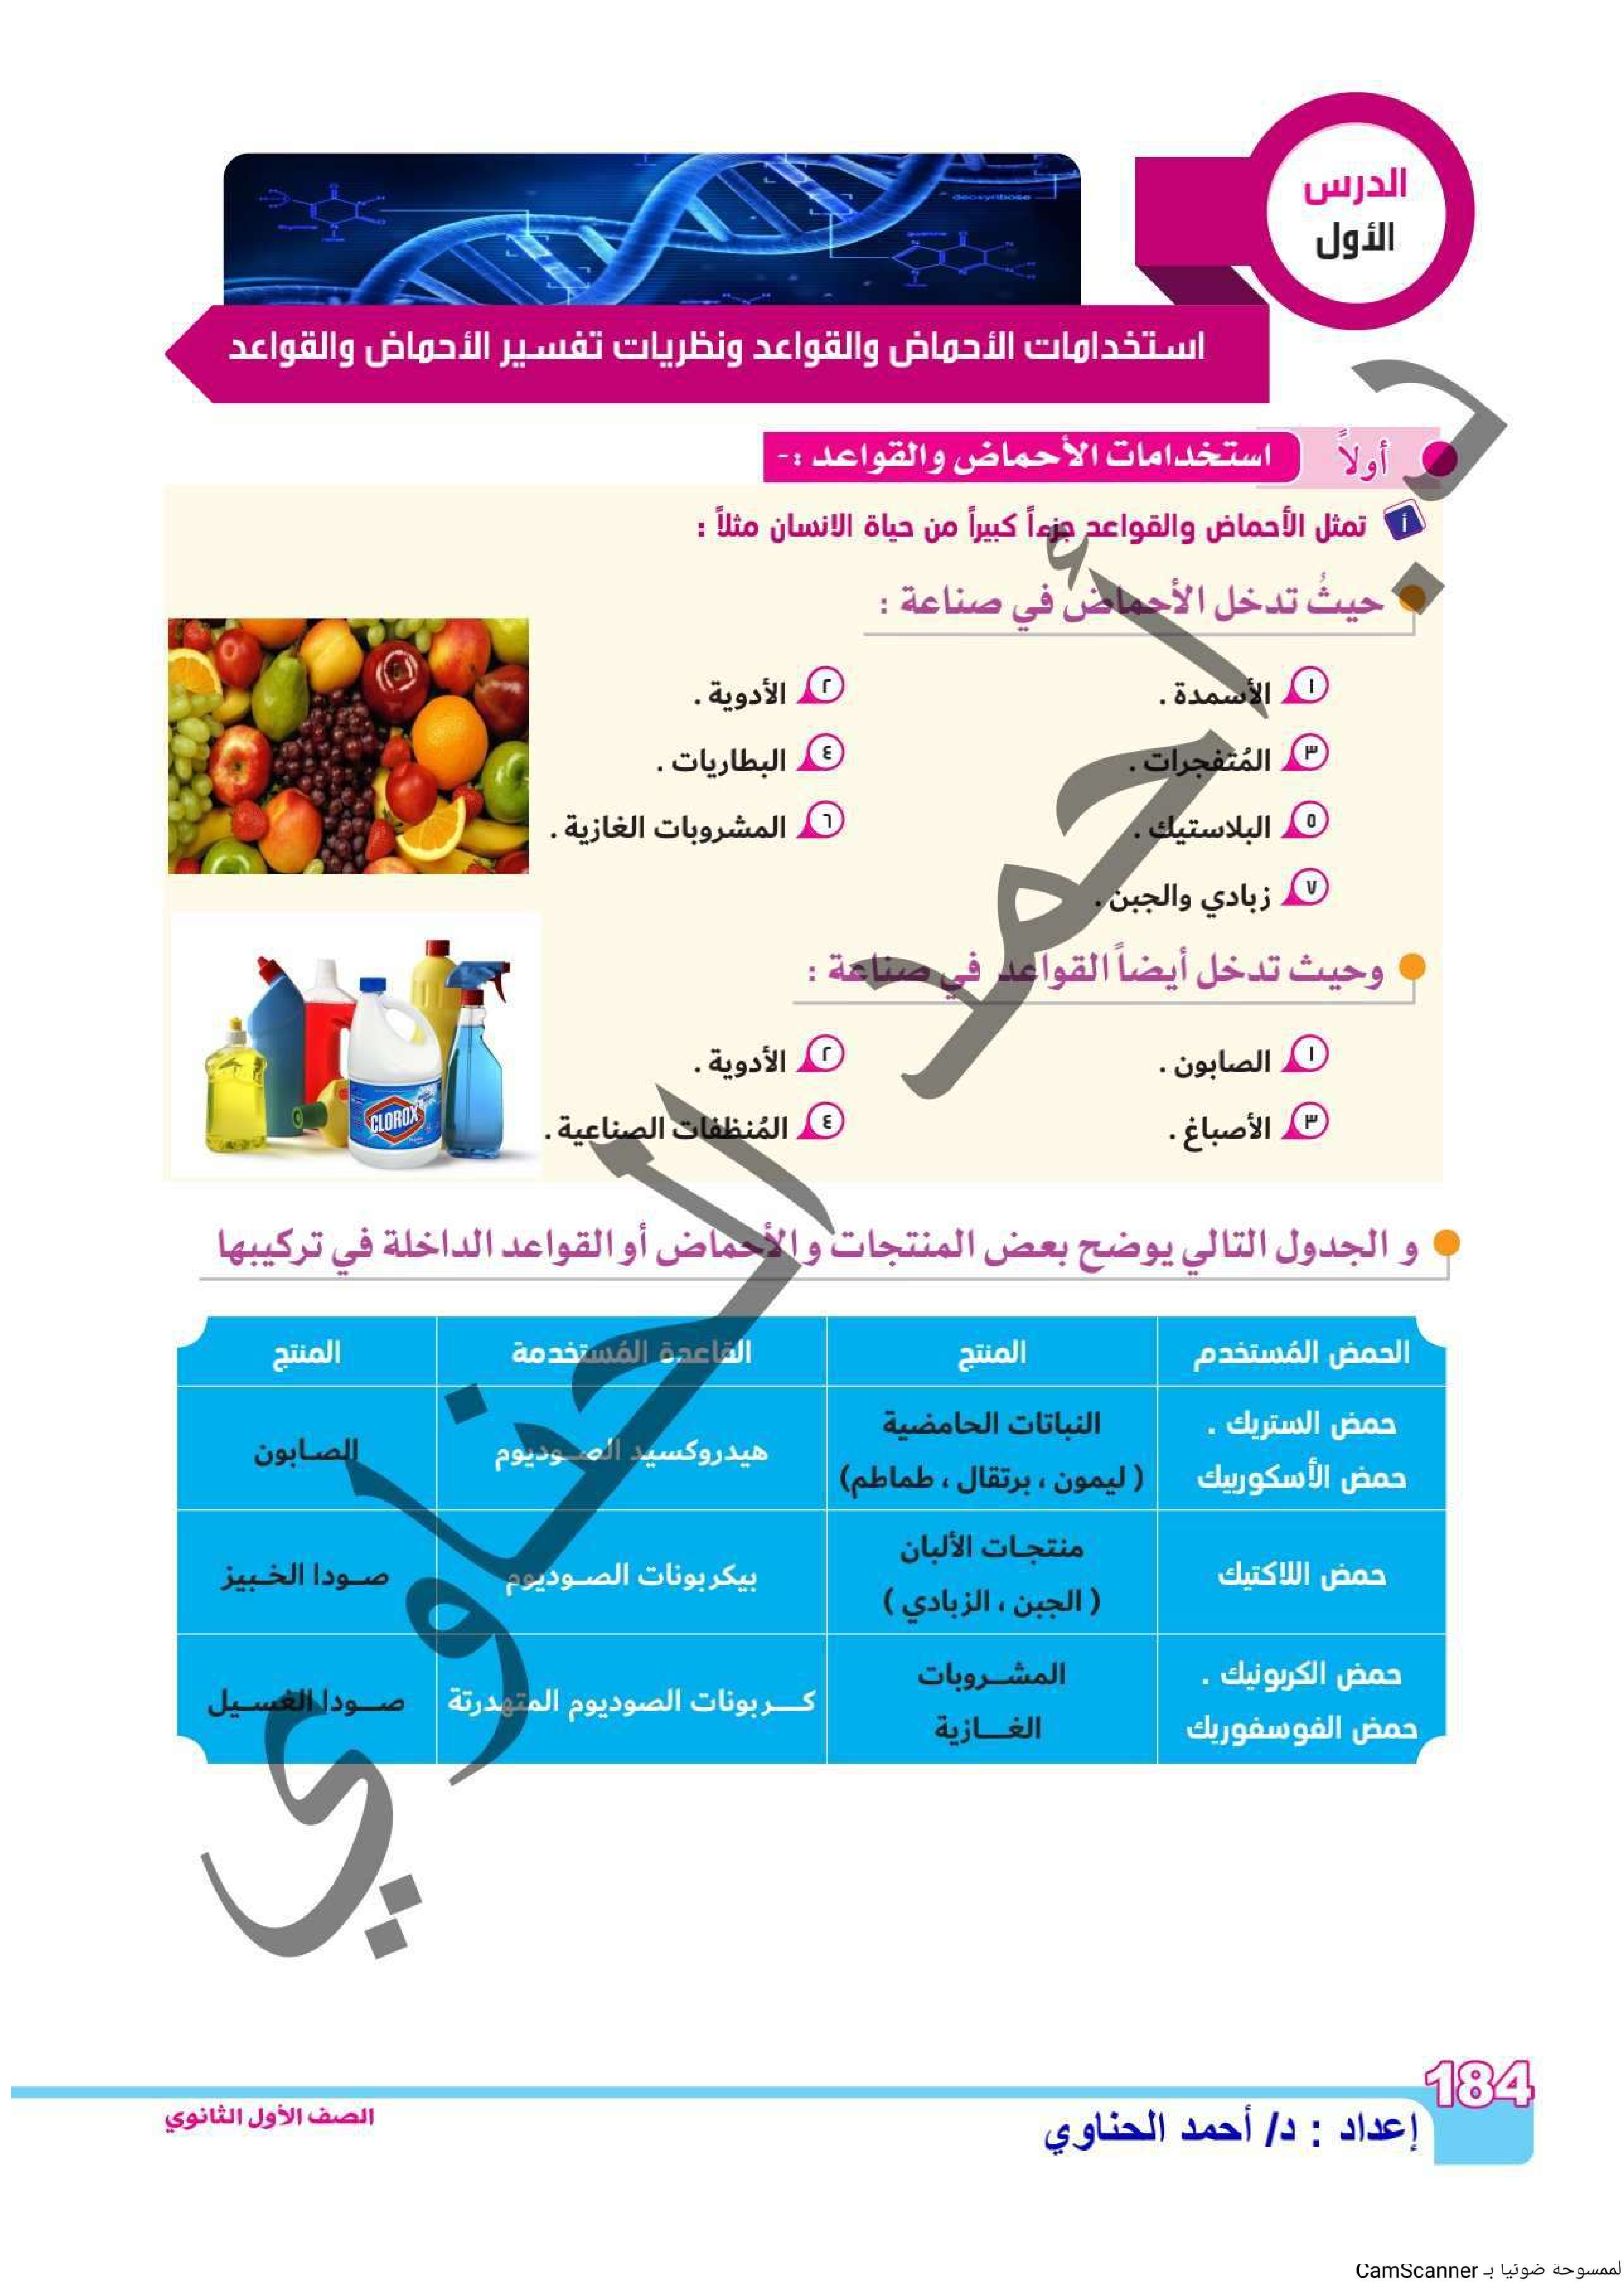 الدرس
الأول
استخدامات الأحماض والقواعد ونظريات تفسير الأحماض والقواعد
أولاً استخدامات الأحماض والقواعد :-
أ تمثل الأحماض والقواعد جزءاً كبيراً من حياة الانسان مثلاً :
حيثُ تدخل الأحماض في صناعة :
١ الأسمدة .
٢ الأدوية .
٣ المُتفجرات .
٤ البطاريات .
٥ البلاستيك .
٦ المشروبات الغازية .
٧ زبادي والجبن .
وحيث تدخل أيضاً القواعد في صناعة :
١ الصابون .
٢ الأدوية .
٣ الأصباغ .
٤ المُنظفات الصناعية .
CLOROX
و الجدول التالي يوضح بعض المنتجات و الأحماض أو القواعد الداخلة في تركيبها
الحمض المُستخدم المنتج القاعدة المُستخدمة المنتج
حمض الستريك .
حمض الأسكوربيك
النباتات الحامضية
( ليمون ، برتقال ، طماطم)
هيدروكسيد الصوديوم
الصابون
حمض اللاكتيك
منتجات الألبان
( الجبن ، الزبادي )
بيكربونات الصوديوم
صودا الخبيز
حمض الكربونيك .
حمض الفوسفوريك
المشروبات
الغازية
كربونات الصوديوم المتهدرتة
صودا الغسيل
د. أحمد الحناوي
184
إعداد : د/ أحمد الحناوي
الصف الأول الثانوي
لممسوحة ضوئيا بـ CamScanner